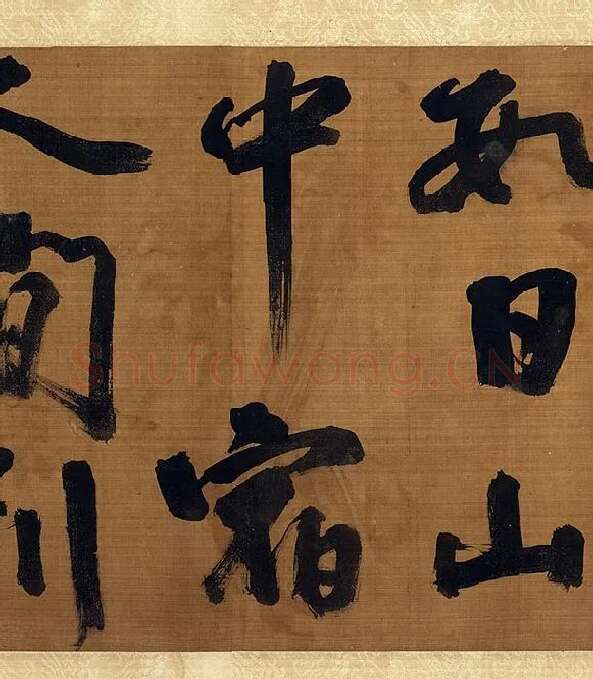 日山
中宿
人間
Shufawang.CN